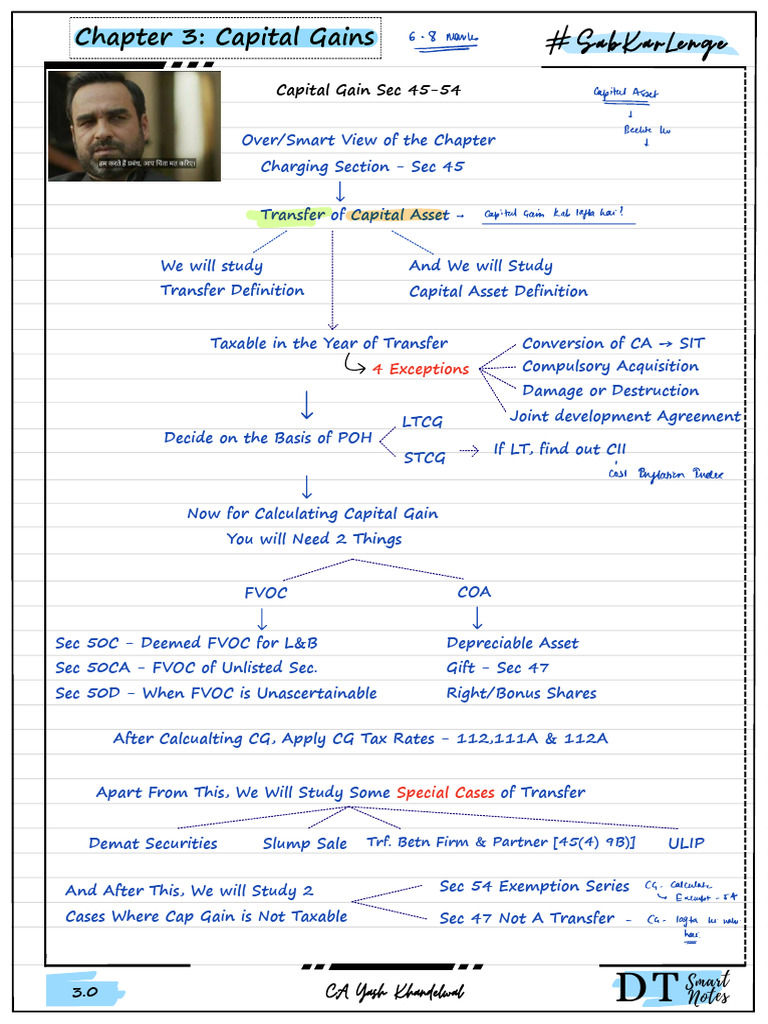 Chapter 3: Capital Gains
6-8 marks
#SabKarLenge
हम करते हैं प्रबंध, आप चिंता मत करिए।
Capital Gain Sec 45-54
Capital Asset
↓
↓
Over/Smart View of the Chapter
Charging Section - Sec 45
↓
Transfer of Capital Asset - Capital Gain kab lagta hai?
We will study
Transfer Definition
And We will Study
Capital Asset Definition
Taxable in the Year of Transfer
4 Exceptions
Conversion of CA → SIT
Compulsory Acquisition
Damage or Destruction
Joint development Agreement
Decide on the Basis of POH
LTCG
STCG
If LT, find out CII
Cost Inflation Index
Now for Calculating Capital Gain
You will Need 2 Things
FVOC
COA
Sec 50C - Deemed FVOC for L&B
Sec 50CA - FVOC of Unlisted Sec.
Sec 50D - When FVOC is Unascertainable
Depreciable Asset
Gift - Sec 47
Right/Bonus Shares
After Calcualting CG, Apply CG Tax Rates - 112,111A & 112A
Apart From This, We Will Study Some Special Cases of Transfer
Demat Securities
Slump Sale
Trf. Betn Firm & Partner [45(4) 9B)]
ULIP
And After This, We will Study 2
Cases Where Cap Gain is Not Taxable
Sec 54 Exemption Series
CG - Calculate
Exempt - 54
Sec 47 Not A Transfer - CG - lagta hi nahi
hai
3.0
CA Yash Khandelwal
DT Smart
Notes